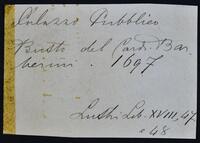 Palazzo Pubblico
Busto del Card. Bar
berini . 1697
Lib. XVIII, 47
e 48